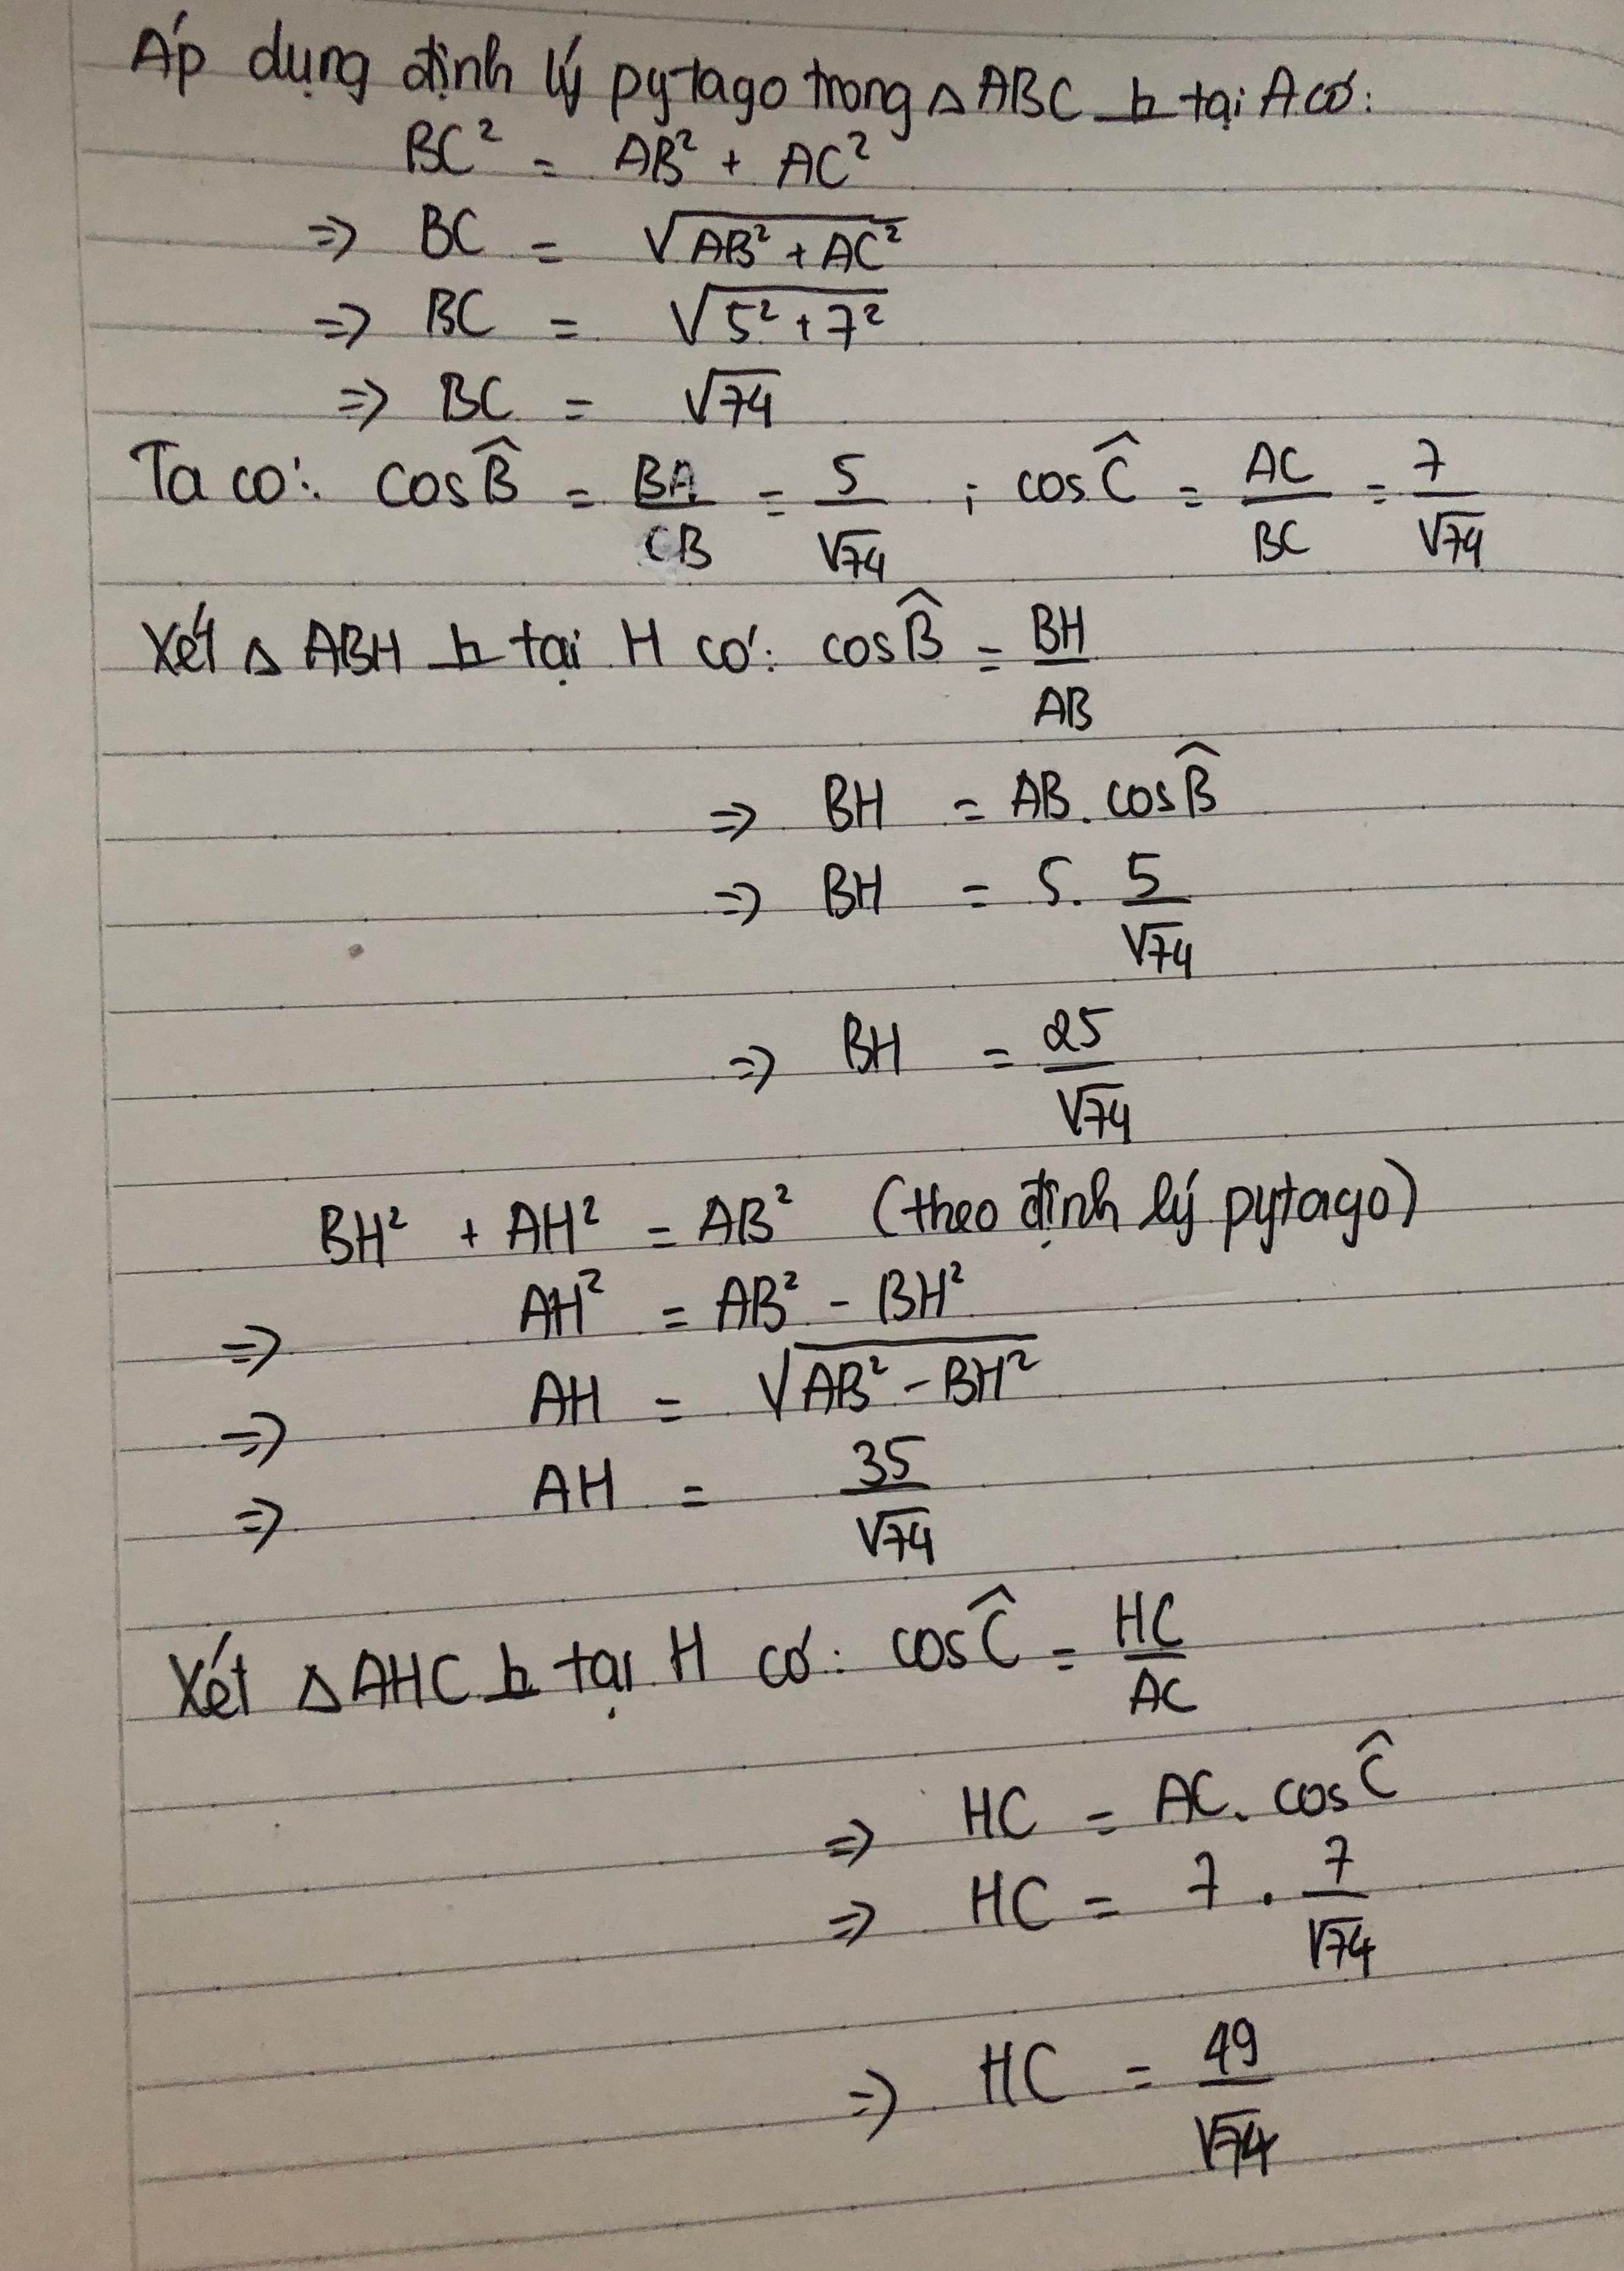 Áp dụng định lý pytago trong △ABC ⊥ tại A có:
BC² = AB² + AC²
=> BC = √(AB² + AC²)
=> BC = √(5² + 7²)
=> BC = √74
Ta có: cos B̂ = BA/CB = 5/√74 ; cos Ĉ = AC/BC = 7/√74
Xét △ ABH ⊥ tại H có: cos B̂ = BH/AB
=> BH = AB. cos B̂
=> BH = 5. 5/√74
=> BH = 25/√74
BH² + AH² = AB² (theo định lý pytago)
=> AH² = AB² - BH²
=> AH = √(AB² - BH²)
=> AH = 35/√74
Xét △AHC ⊥ tại H có: cos Ĉ = HC/AC
=> HC = AC. cos Ĉ
=> HC = 7 . 7/√74
=> HC = 49/√74